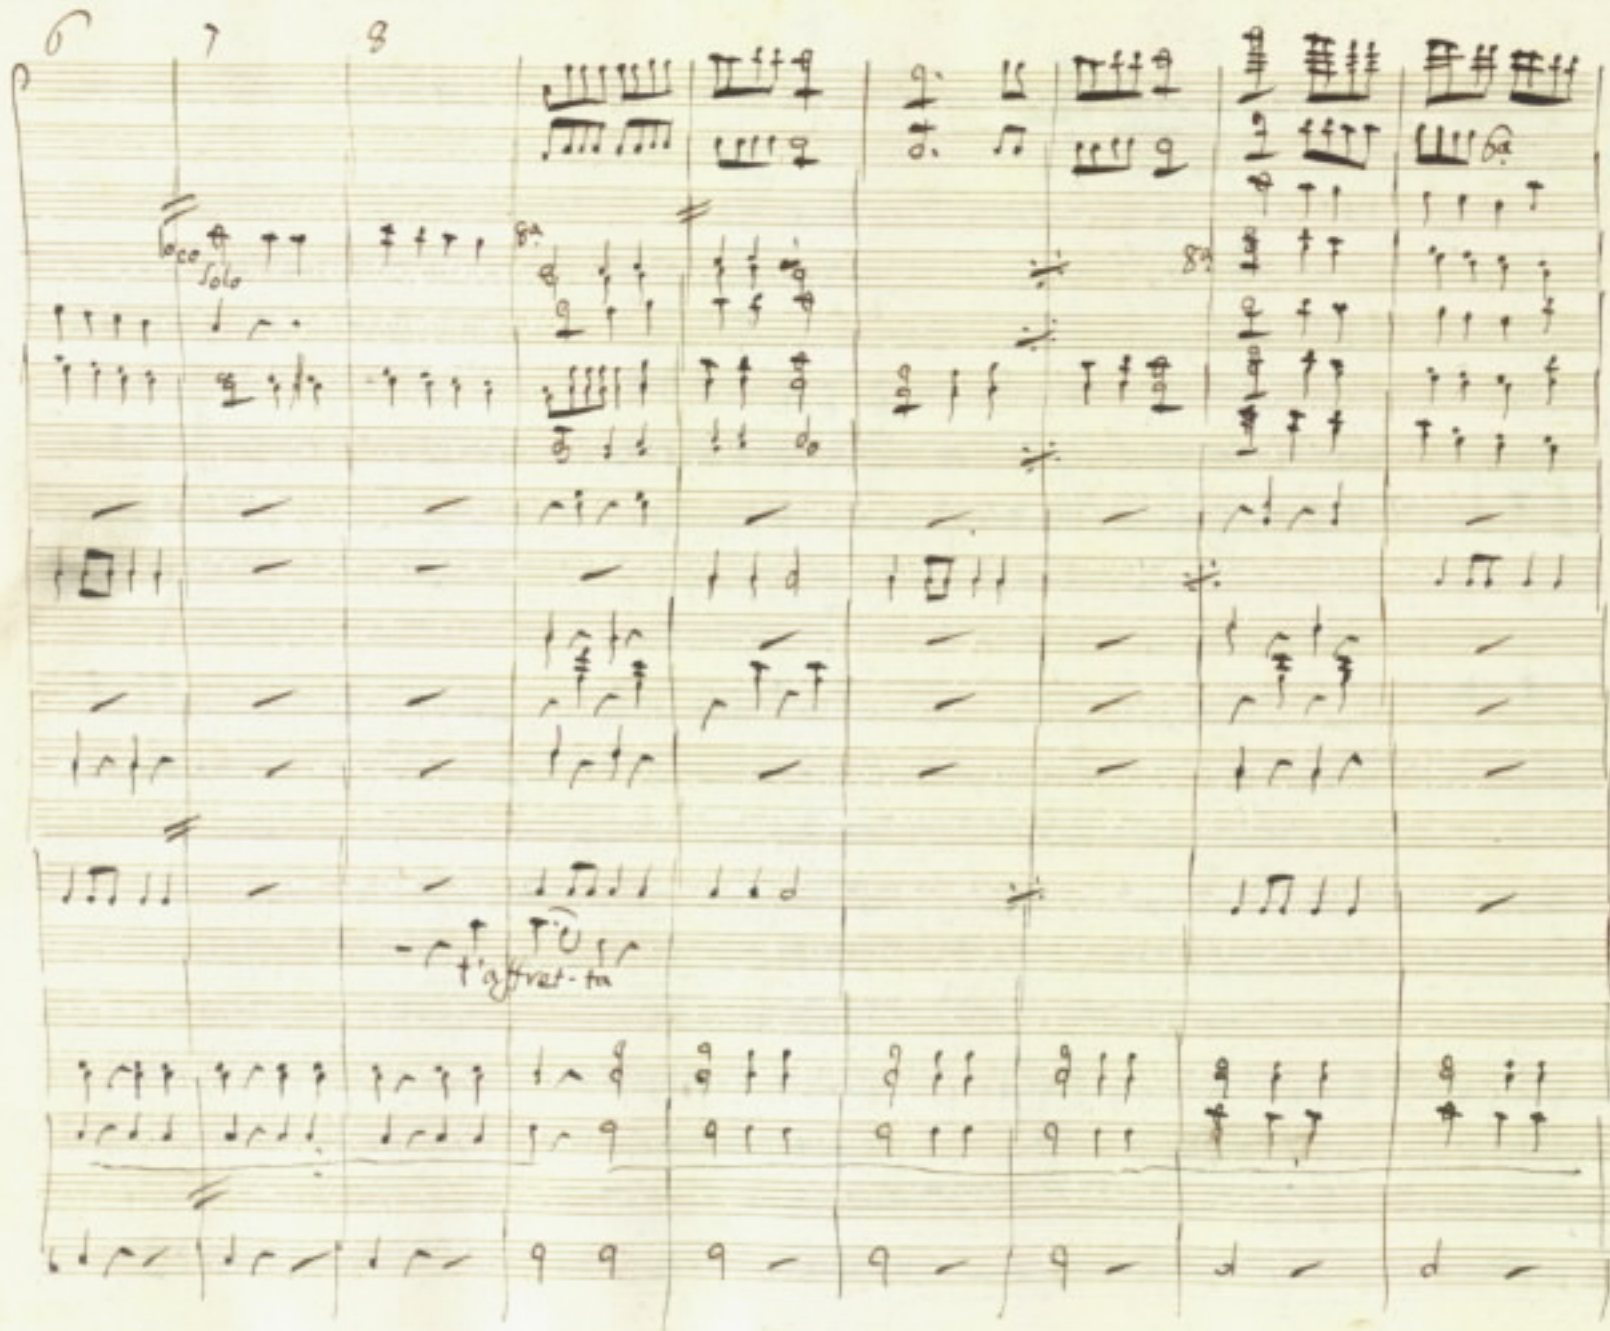 6 7 8
8ª
loco
Solo
8ª
6ª
t'affret-ta